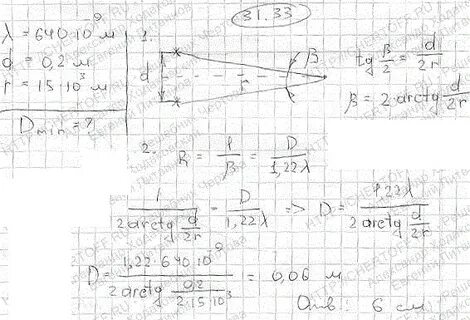 31.33
λ = 640·10⁻⁹ м
d = 0,2 м
r = 15·10³ м
Dmin = ?
1.
d
r
β
tg β/2 = d/2r
β = 2·arctg d/2r
2. R = 1/β = D/1,22λ
1/(2 arctg d/2r) = D/1,22λ => D = 1,22λ/(2 arctg d/2r)
D = 1,22·640·10⁻⁹/(2 arctg 0,2/(2·15·10³)) = 0,06 м
Отв: 6 см